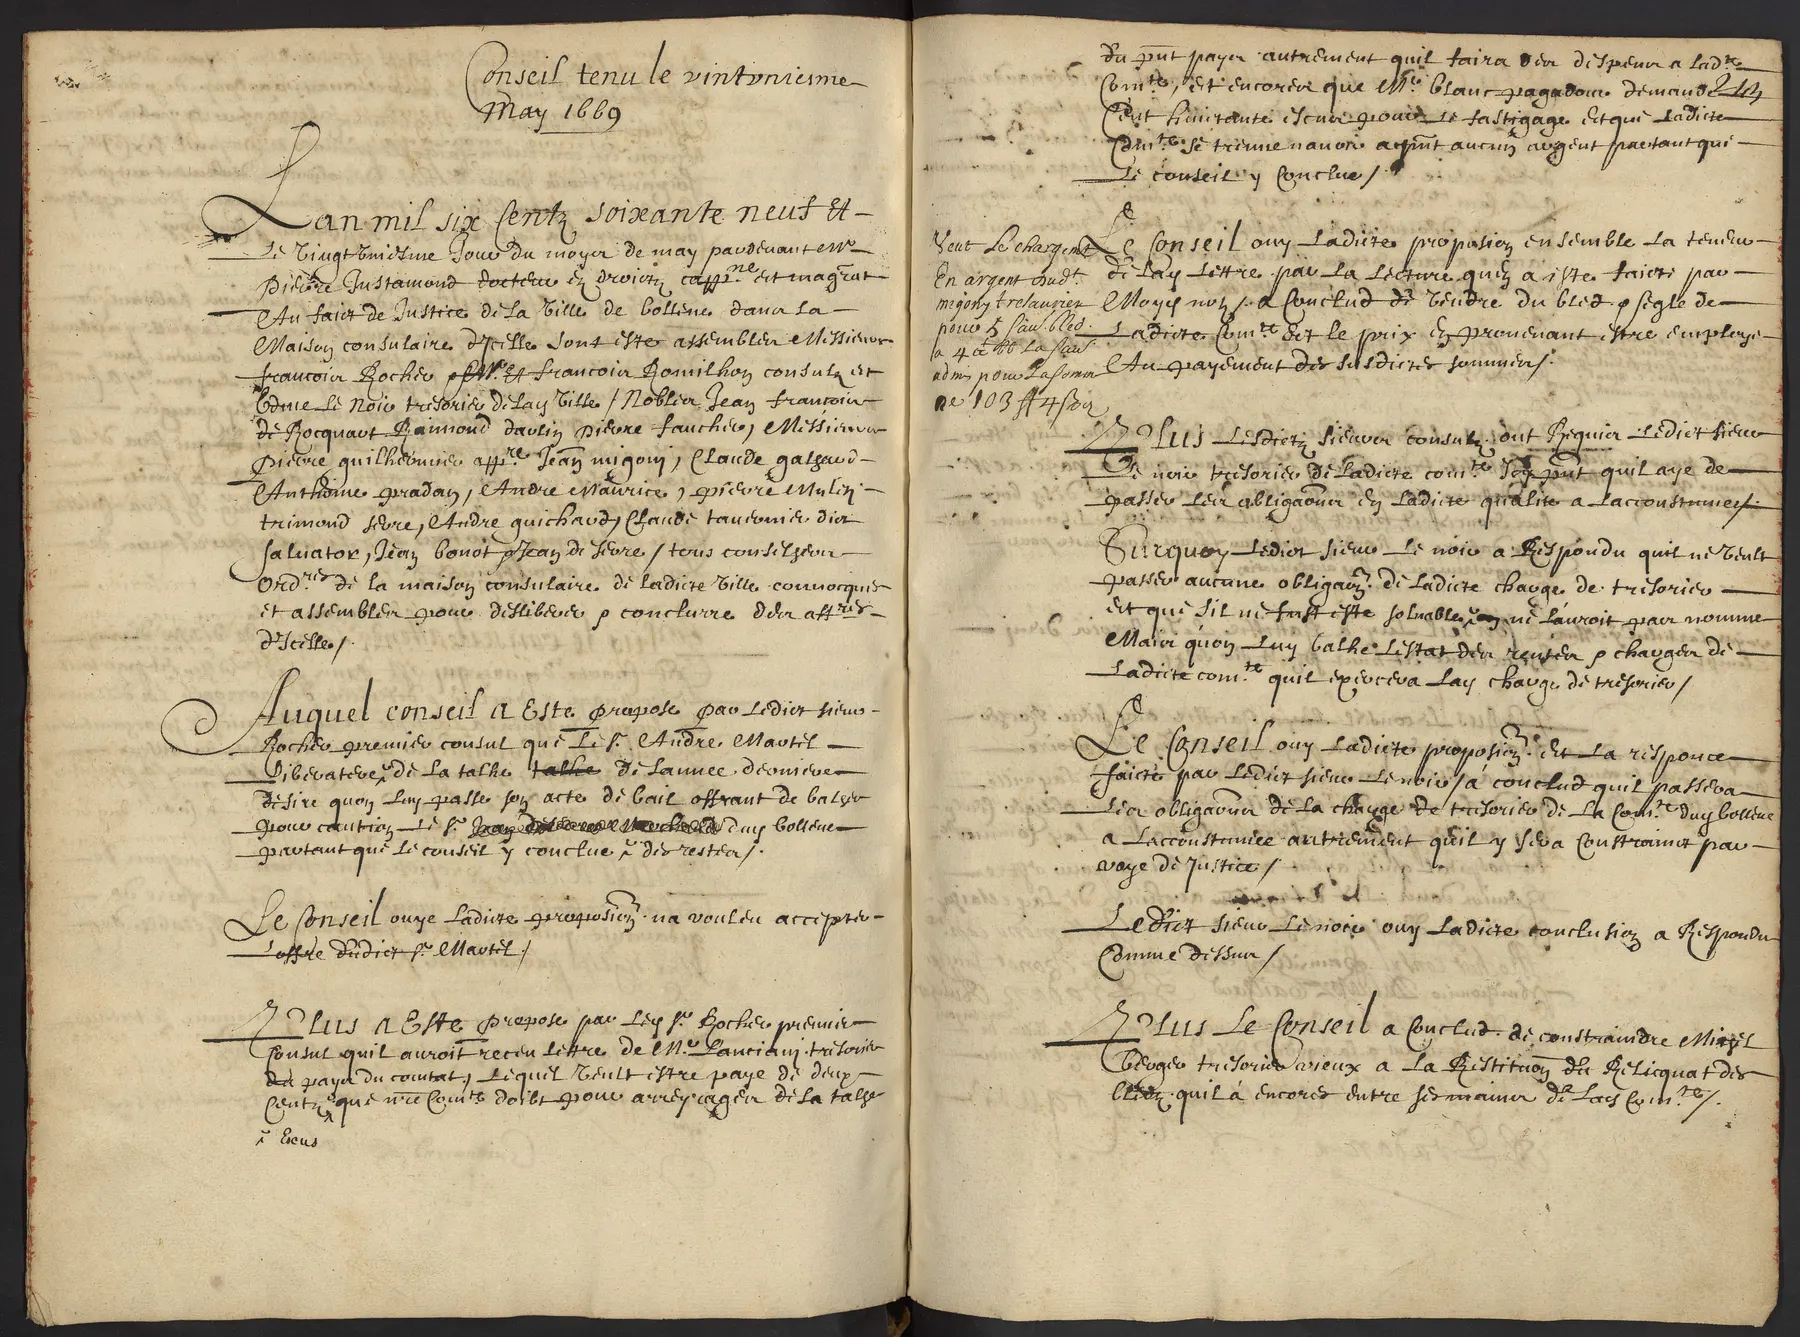 Conseil tenu le vintvniesme
May 1669
Lan mil six Centz soixante neuf Et
Le vingtvniesme Jour du moys de may pardevant Mr
Pierre Justamond docteur en droictz cappne et magrat
Au faict de Justice de la ville de bollene dans la
Maison consulaire dIcelle sont este assembles Messieurs
francois Rocher francois Romilhon consulz et
le Noir tresorier de lay ville / Nobles Jean francois
de Rocquart Raimond daulin pierre faucher, Messieurs
pierre guilhermier appre Jean migony, Claude
Anthoine pradon, Andre Maurice, pierre Mulin
trimond serre, Andre guichard, Claude tavernier dict
salvator, Jean bonot Jean de serre / tous conselhers
Ordres de la maison consulaire de ladicte ville convocques
et assembles pour desliberer p conclurre des affres
dIcelle /
Auquel conseil a Este propose par Ledict sieur
Rocher premier consul que Le sr Andre Martel
liberatere de la talhe talhe de lannee derniere
desire quon luy passe son acte de bail offrant de balher
pour caution Le sr duy bollene
partant que Le conseil y conclue des restes /
Le Conseil ouye Ladicte proposion na vouleu accepter
Loffre dudict sr Martel /
Plus a Este propose par Ley sr Rocher premier
Consul quil auroit receu lettre de Mr Lanciany tresorier
du pays du comtat, Lequel veult estre paye de deux
Centz que nre Comte doibt pour arreyrages de la talhe
Escus
du pnt payer autrement quil faira des despens a ladte
Comte, et encores que Mr blanc pagadour demande
Cent huictante escus pour le fastigage Et que Ladicte
Comte se treuve navoir apnt aucun argent partant que
Le conseil y Conclue /
Le Conseil ouy Ladicte proposion ensemble la teneur
de lay lettre par la lecture quen a este faicte par
Moy nore a Conclud de vendre du bled p segle de
Ladicte Comte Et le prix en provenant estre employe
Au payement des susdictes sommes /
Veut Le chargent
En argent dudt
migony tresaurier
pour 5 sau. bled
a 4 la sau
pour la som
ne 103 ff 4 sou
Plus Lesdictz sieurs consulz ont Requis Ledict sieur
Le noir tresorier de ladicte comte Icy pnt quil aye de
passer les obligaons en ladicte qualite a laccoustumee /
Surquoy Ledict sieur Le noir a Respondu quil ne veult
passer aucune obligaon de ladicte charge de tresorier
et que sil ne fust este solvable on ne lauroit pas nomme
Mais quon luy balhe lestat des rentes p charges de
Ladicte comte quil exercera lay charge de tresorier /
Le Conseil ouy Ladicte proposion Et la responce
faicte par Ledict sieur Lenoir / a conclud quil passera
les obligaons de la charge de tresorier de la Comte duy bollene
a Laccoustumee autrement quil y sera Constrainct par
voye de Justice /
Ledict sieur Lenoir ouy Ladicte conclusion a Respondu
Comme dessus /
Plus Le Conseil a Conclud de constraindre
berger tresorier vieux a la Restituon du Relicquat des
bledz quil a encores entre ses mains de lay Comte /